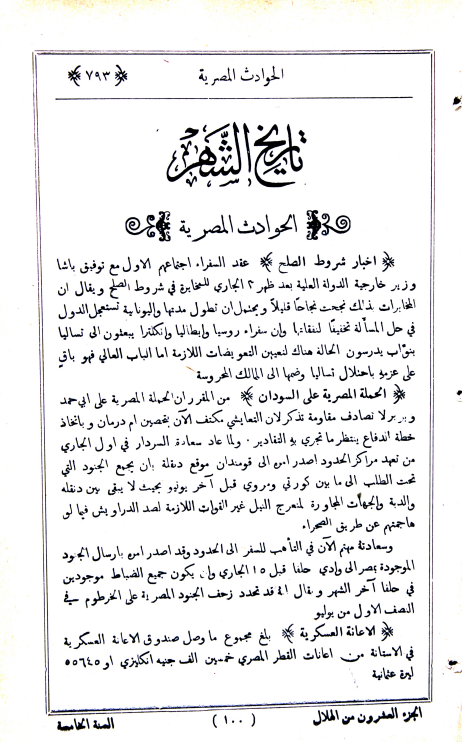 الحوادث المصرية
﴿ ٧٩٣ ﴾
تاريخ الشهر
الحوادث المصرية
﴿ اخبار شروط الصلح ﴾ عقد السفراء اجتماعهم الاول مع توفيق باشا
وزير خارجية الدولة العلية بعد ظهر ٢ الجاري للمخابرة في شروط الصلح ويقال ان
المخابرات بذلك نجحت نجاحًا قليلًا ويحتمل ان تطول مدتها واليونانية تستعجل الدول
في حل المسألة تخفيفًا لنفقاتها وإن سفراء روسيا وإيطاليا وإنكلترا يبعثون الى تساليا
بنوّاب يدرسون الحالة هناك لتعيين التعويضات اللازمة اما الباب العالي فهو باقٍ
على عزمهِ باحتلال تساليا وضمها الى الممالك المحروسة
﴿ الحملة المصرية على السودان ﴾ من المقرر ان الحملة المصرية على ابي حمد
وبربر لا تصادف مقاومة تذكر لان التعايشي مكتف الآن بتحصين ام درمان وباتخاذ
خطة الدفاع ينتظر ما تجري بهِ التقادير. ولما عاد سعادة السردار في اول الجاري
من تعهد مراكز الحدود اصدر امره الى قومندان موقع دنقلة بان يجمع الجنود التي
تحت الطلب الى ما بين كورتي ومروي قبل آخر يونيو بحيث لا يبقى بين دنقله
والدبة والجهات المجاورة لمنعرج النيل غير القوات اللازمة لصد الدراويش فيما لو
هاجمتهم عن طريق الصحراء
وسعادتهُ مهتم الآن في التأهب للسفر الى الحدود وقد اصدر امره بارسال الجنود
الموجودة بمصر الى وادي حلفا قبل ١٥ الجاري وان يكون جميع الضباط موجودين
في حلفا آخر الشهر ويقال انهُ قد تحدد زحف الجنود المصرية على الخرطوم في
النصف الاول من يوليو
﴿ الاعانة العسكرية ﴾ بلغ مجموع ما وصل صندوق الاعانة العسكرية
في الاستانة من اعانات القطر المصري خمسين الف جنيه انكليزي او ٥٥٦٤٥
ليرة عثمانية
الجزء العشرون من الهلال
( ١٠٠ )
السنة الخامسة